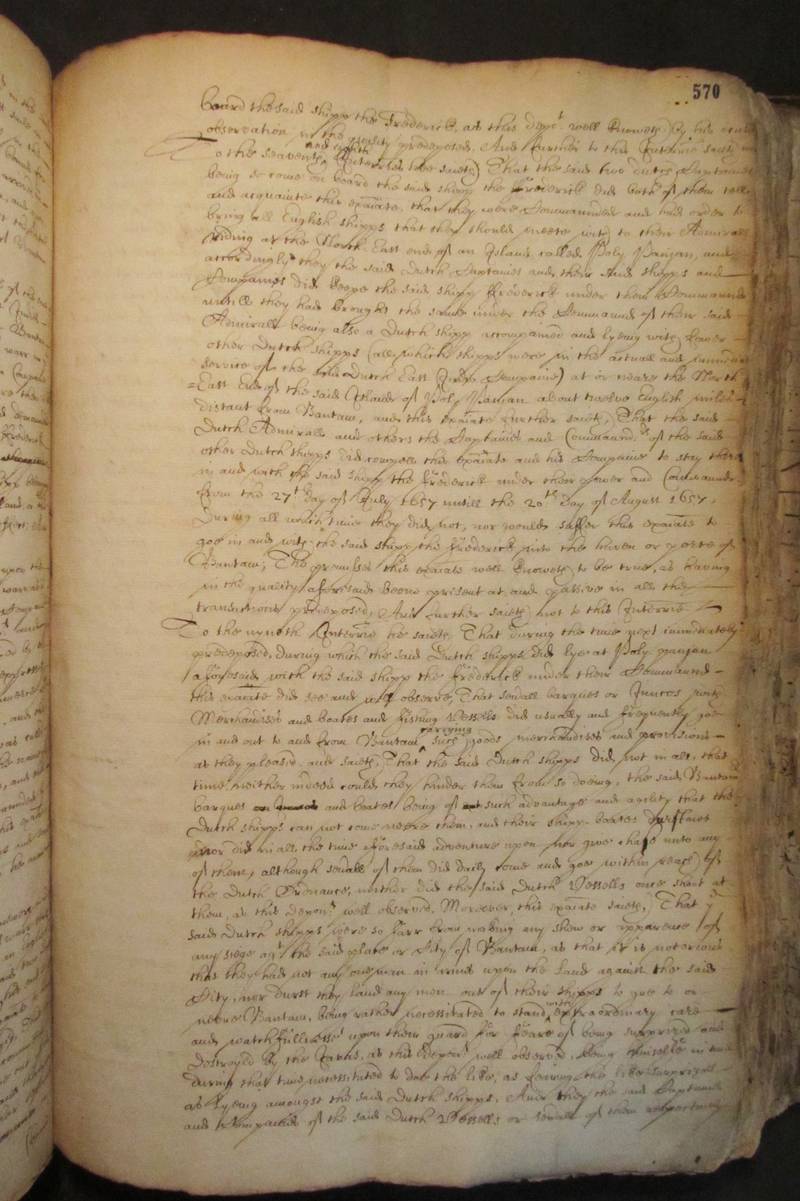 570
board the said shipp the Frederick, as this depot well knoweth by his
observation in the quality predeposed. And further to this Interrie saith not
To the seaventh and eighth Interries hee saieth That the said two dutch Captaines
being so come on board the said shipp the Frederick did both of them tell
and acquainte this examinate, that they were Commaunded and had order to
bring all English shipps that they should meete with to their Admirall
riding at the North East end of an Island called Poly Panjan, and
accordingly they the said Dutch Captaines and their said shipps and
Companies did keepe the said shipp Frederick under their Commaund
untill they had brought the same under the Commaund of their said
Admirall being also a Dutch shipp accompained and lyeing with fower
other Dutch shipps (all which shipps were in the actuall and immediate
service of the said Dutch East India Companie) at or neare the North
East End of the said Island of Poly Panjan about twelve English miles
distant from Bantam, and this examinate further saieth, That the said
Dutch Admirall and others the Captaines and Commaundrs of the said
other Dutch shipps did compell this examinate and his Companie to stay there
in and with the said shipp the Frederick under their power and Commaund
from the 27th day of July 1657 untill the 20th day of August 1657,
During all which time they did not, nor would suffer this examinate to
goe in and with the said shipp the Frederick into the haven or porte of
Bantam, The premisses this examinate well knoweth to be true, as having
in the quality aforesaid beene present at and passive in all the
transactions predeposed, And further saieth not to this Interrie
To the nyneth Interrie hee saieth That during the time next immediately
predeposed, during which the said Dutch shipps did lye at Poly panjan
aforesaid with the said shipp the Frederick under their Commaund
this examinate did see and well observe, That severall barques or Juncos with
Merchandises and boates and fishing Vessells did usually and frequently goe
in and out to and from Bantam carrying such goods merchandises and provisions
as they pleased, and saieth, That the said Dutch shipps did not in all that
time neither indeed could they hinder them from so doeing, the said Bantam
barques and boates being of such advantage and agility that the
Dutch shipps can not come neere them, and their shipp-boates durst not
nor did in all the time aforesaid adventure upon nor give chase unto any
of them, although severall of them did daily come and goe within reach of
the Dutch Ordnance, neither did the said Dutch Vessells once shoot at
them, as this deponent well observed. Moreover, this examinate saieth, That the
said Dutch shipps were so farr from making any show or apparence of
any siege agt the said place or City of Bantam, as that it is notorious
that they had not any one man in armes upon the land against the said
City, nor durst they land any men out of their shipps to goe to or
neere Bantam, being rather necessitated to stand with extraordinary care
and watchfullnesse upon their guard for feare of being surprized and
destroyed by the Javas, as this depont well observed, being himselfe in time
during that time necessitated to doe the like, as fearing the like surprizall
as lyeing amongst the said Dutch shipps, And they the said Captaines
and Companies of the said Dutch Vessells or severall of them respectively